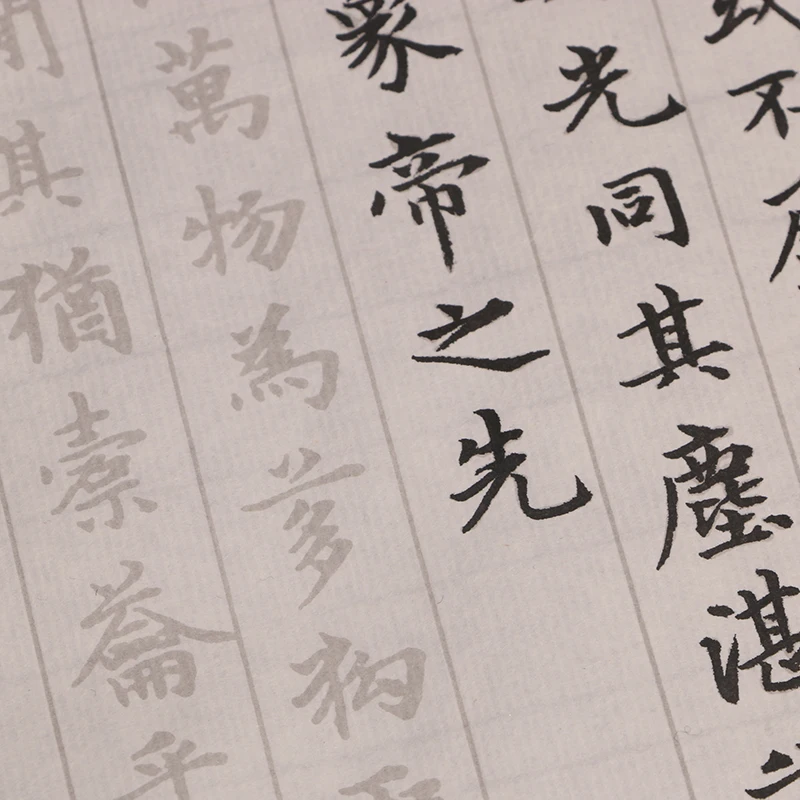 不
光同其塵湛
象帝之先
萬物為芻狗
其猶橐籥乎